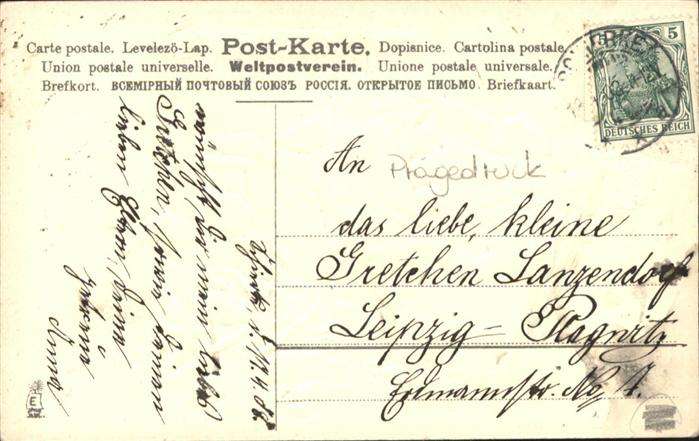 Carte postale. Levelezö-Lap. Post-Karte. Dopisnice. Cartolina postale.
Union postale universelle. Weltpostverein. Unione postale universale.
Brefkort. ВСЕМІРНЫЙ ПОЧТОВЫЙ СОЮЗЪ РОССІЯ. ОТКРЫТОЕ ПИСЬМО. Briefkaart.
5
DEUTSCHES REICH
An
Prägedruck
das liebe, kleine
Gretchen Lanzendorf
Leipzig-Plagwitz
Erdmannstr. No 1.
4.08
wünscht dir mein liebes
Gretchen,
lieben Eltern, Deine
Anna
E